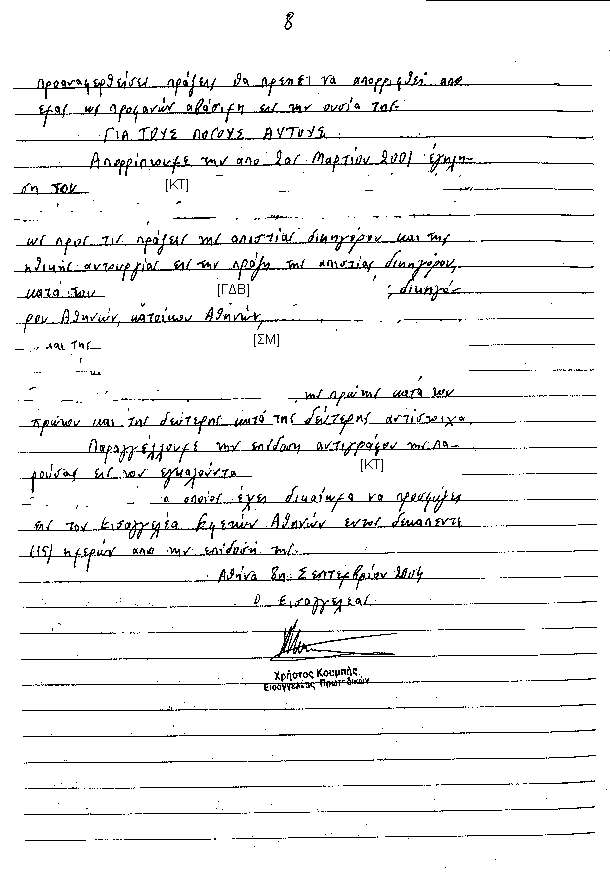 8
προαναφερθείσες πράξεις θα πρέπει να απορριφθεί από
εμάς ως προφανών αβάσιμη εις την ουσία της.
ΓΙΑ ΤΟΥΣ ΛΟΓΟΥΣ ΑΥΤΟΥΣ
Απορρίπτουμε την από 2ας Μαρτίου 2001 έγκλη-
ση του [ΚΤ]
ως προς τις πράξεις της απιστίας δικηγόρου και της
ηθικής αυτουργίας εις την πράξη της απιστίας δικηγόρου,
κατά του [ΓΔΒ] , δικηγό-
ρου Αθηνών, κατοίκου Αθηνών,
και της [ΣΜ]
της πρώτης κατά του
πρώτου και της δεύτερης κατά της δεύτερης αντίστοιχα.
Παραγγέλλουμε την επίδοση αντιγράφου της πα-
ρούσας εις τον εγκαλούντα [ΚΤ]
ο οποίος έχει δικαίωμα να προσφύγει
εις τον Εισαγγελέα Εφετών Αθηνών εντός δεκαπέντε
(15) ημερών από την επίδοσή της.
Αθήνα 8η Σεπτεμβρίου 2004
Ο Εισαγγελέας
Χρήστος Κουμπής
Εισαγγελέας Πρωτοδικών